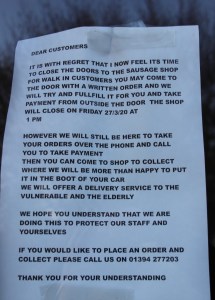 DEAR CUSTOMERS
IT IS WITH REGRET THAT I NOW FEEL ITS TIME
TO CLOSE THE DOORS TO THE SAUSAGE SHOP
FOR WALK IN CUSTOMERS YOU MAY COME TO
THE DOOR WITH A WRITTEN ORDER AND WE
WILL TRY AND FULLFILL IT FOR YOU AND TAKE
PAYMENT FROM OUTSIDE THE DOOR THE SHOP
WILL CLOSE ON FRIDAY 27/3/20 AT
1 PM
HOWEVER WE WILL STILL BE HERE TO TAKE
YOUR ORDERS OVER THE PHONE AND CALL
YOU TO TAKE PAYMENT
THEN YOU CAN COME TO SHOP TO COLLECT
WHERE WE WILL BE MORE THAN HAPPY TO PUT
IT IN THE BOOT OF YOUR CAR
WE WILL OFFER A DELIVERY SERVICE TO THE
VULNERABLE AND THE ELDERLY
WE HOPE YOU UNDERSTAND THAT WE ARE
DOING THIS TO PROTECT OUR STAFF AND
YOURSELVES
IF YOU WOULD LIKE TO PLACE AN ORDER AND
COLLECT PLEASE CALL US ON 01394 277203
THANK YOU FOR YOUR UNDERSTANDING